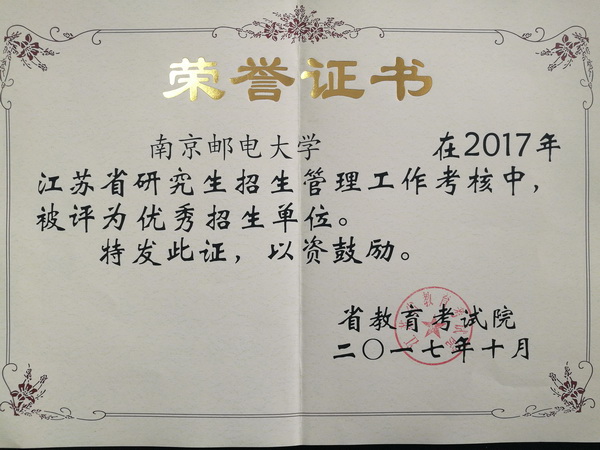 荣誉证书
南京邮电大学 在2017年
江苏省研究生招生管理工作考核中，
被评为优秀招生单位。
特发此证，以资鼓励。
省教育考试院
二〇一七年十月
江苏省教育考试院